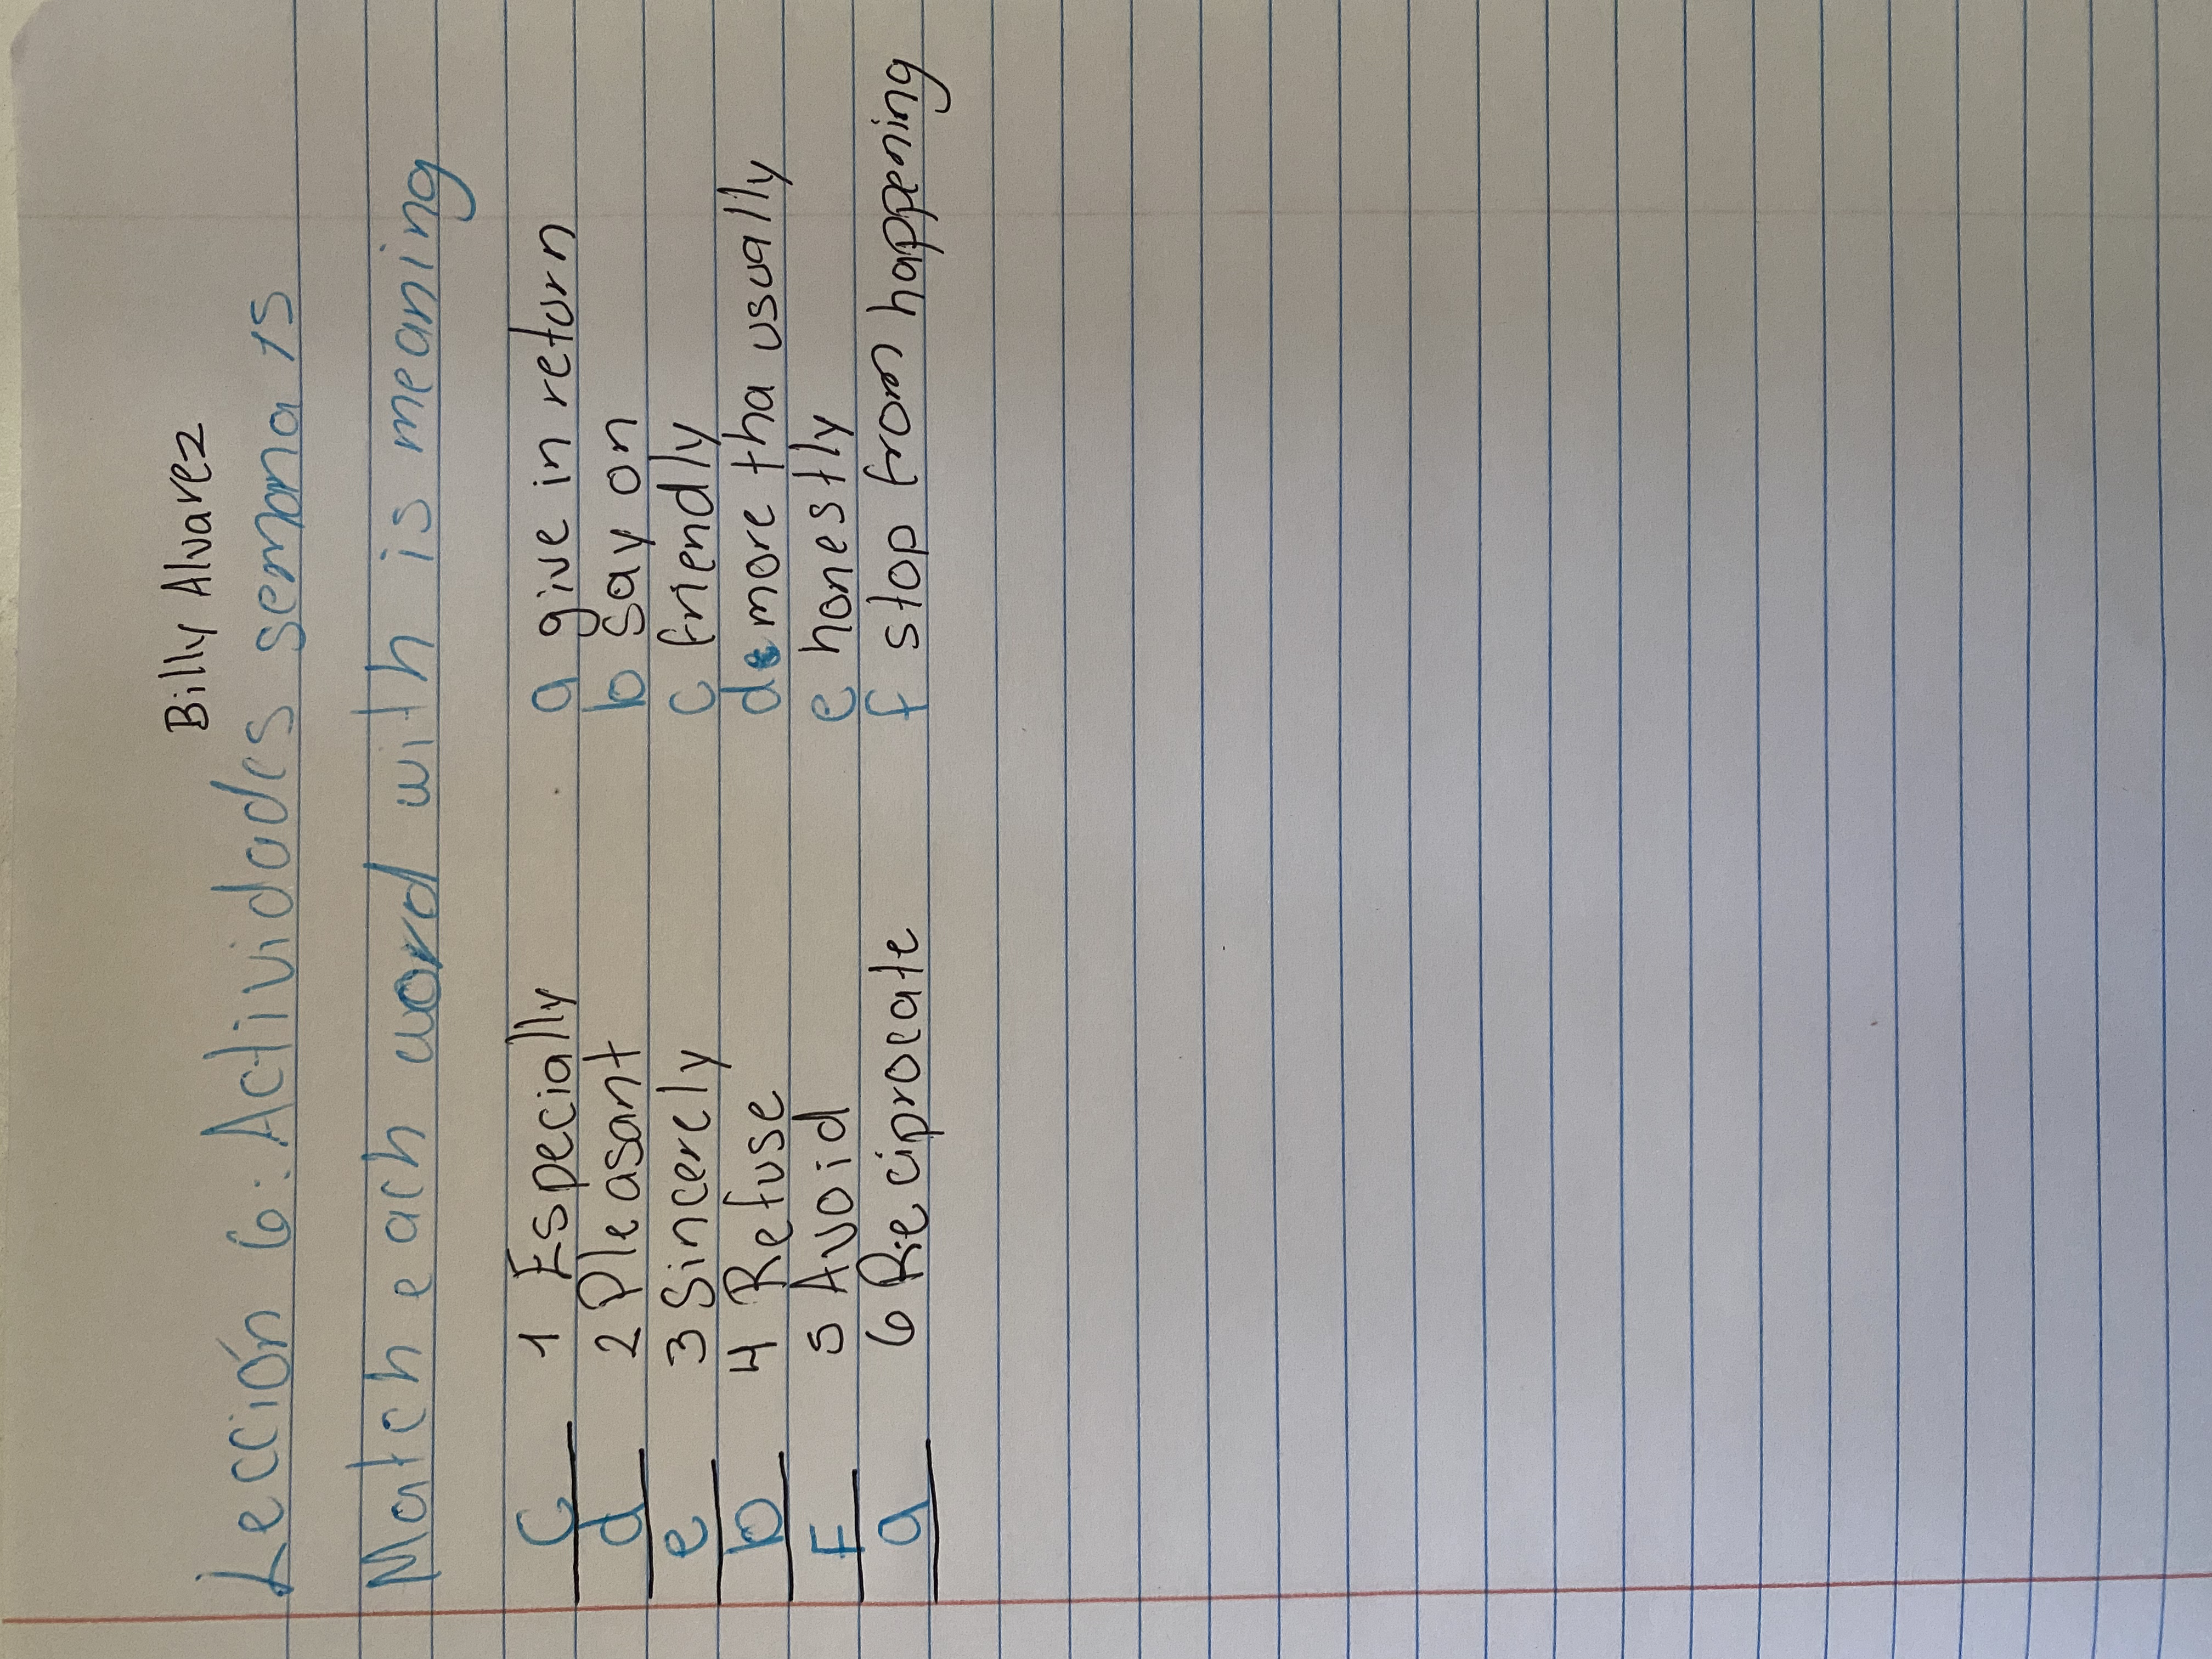 Billy Alvarez
Lección 6: Actividades semana 15
Match each word with is meaning
c 1 Especially a give in return
d 2 Pleasant b say on
e 3 Sincerely c friendly
b 4 Refuse d more tha usually
F 5 Avoid e honestly
a 6 Reciprocate f stop from happening